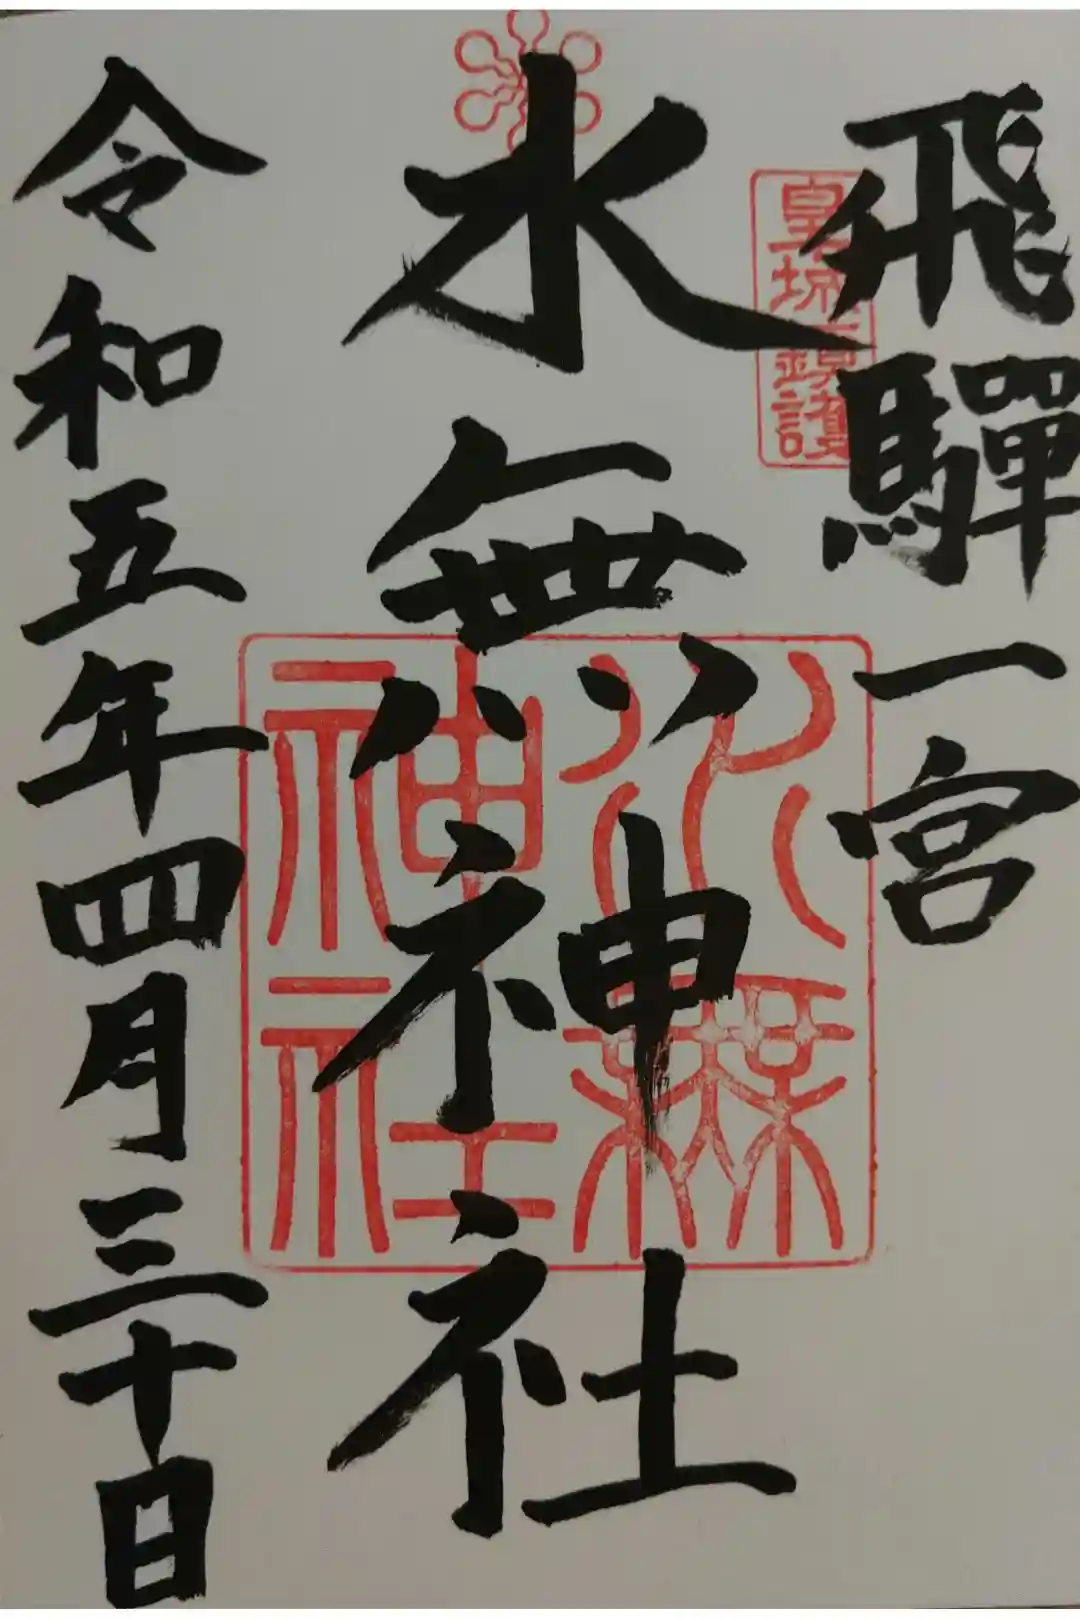 飛驒一宮
皇城鎮護
水無神社
水無神社
令和五年四月三十日